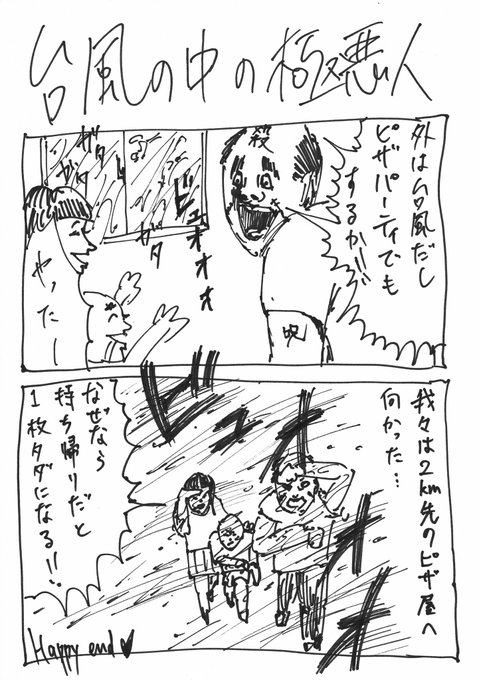 台風の中の極悪人
外は台風だし
ピザパーティでも
するか!!
殺
呪
ビュオオオ
ガタ
ガタ
ガタ
やったー
我々は2km先のピザ屋へ
向かった…
ビュオオオ
なぜなら
持ち帰りだと
1枚タダになる!!
Happy end♥